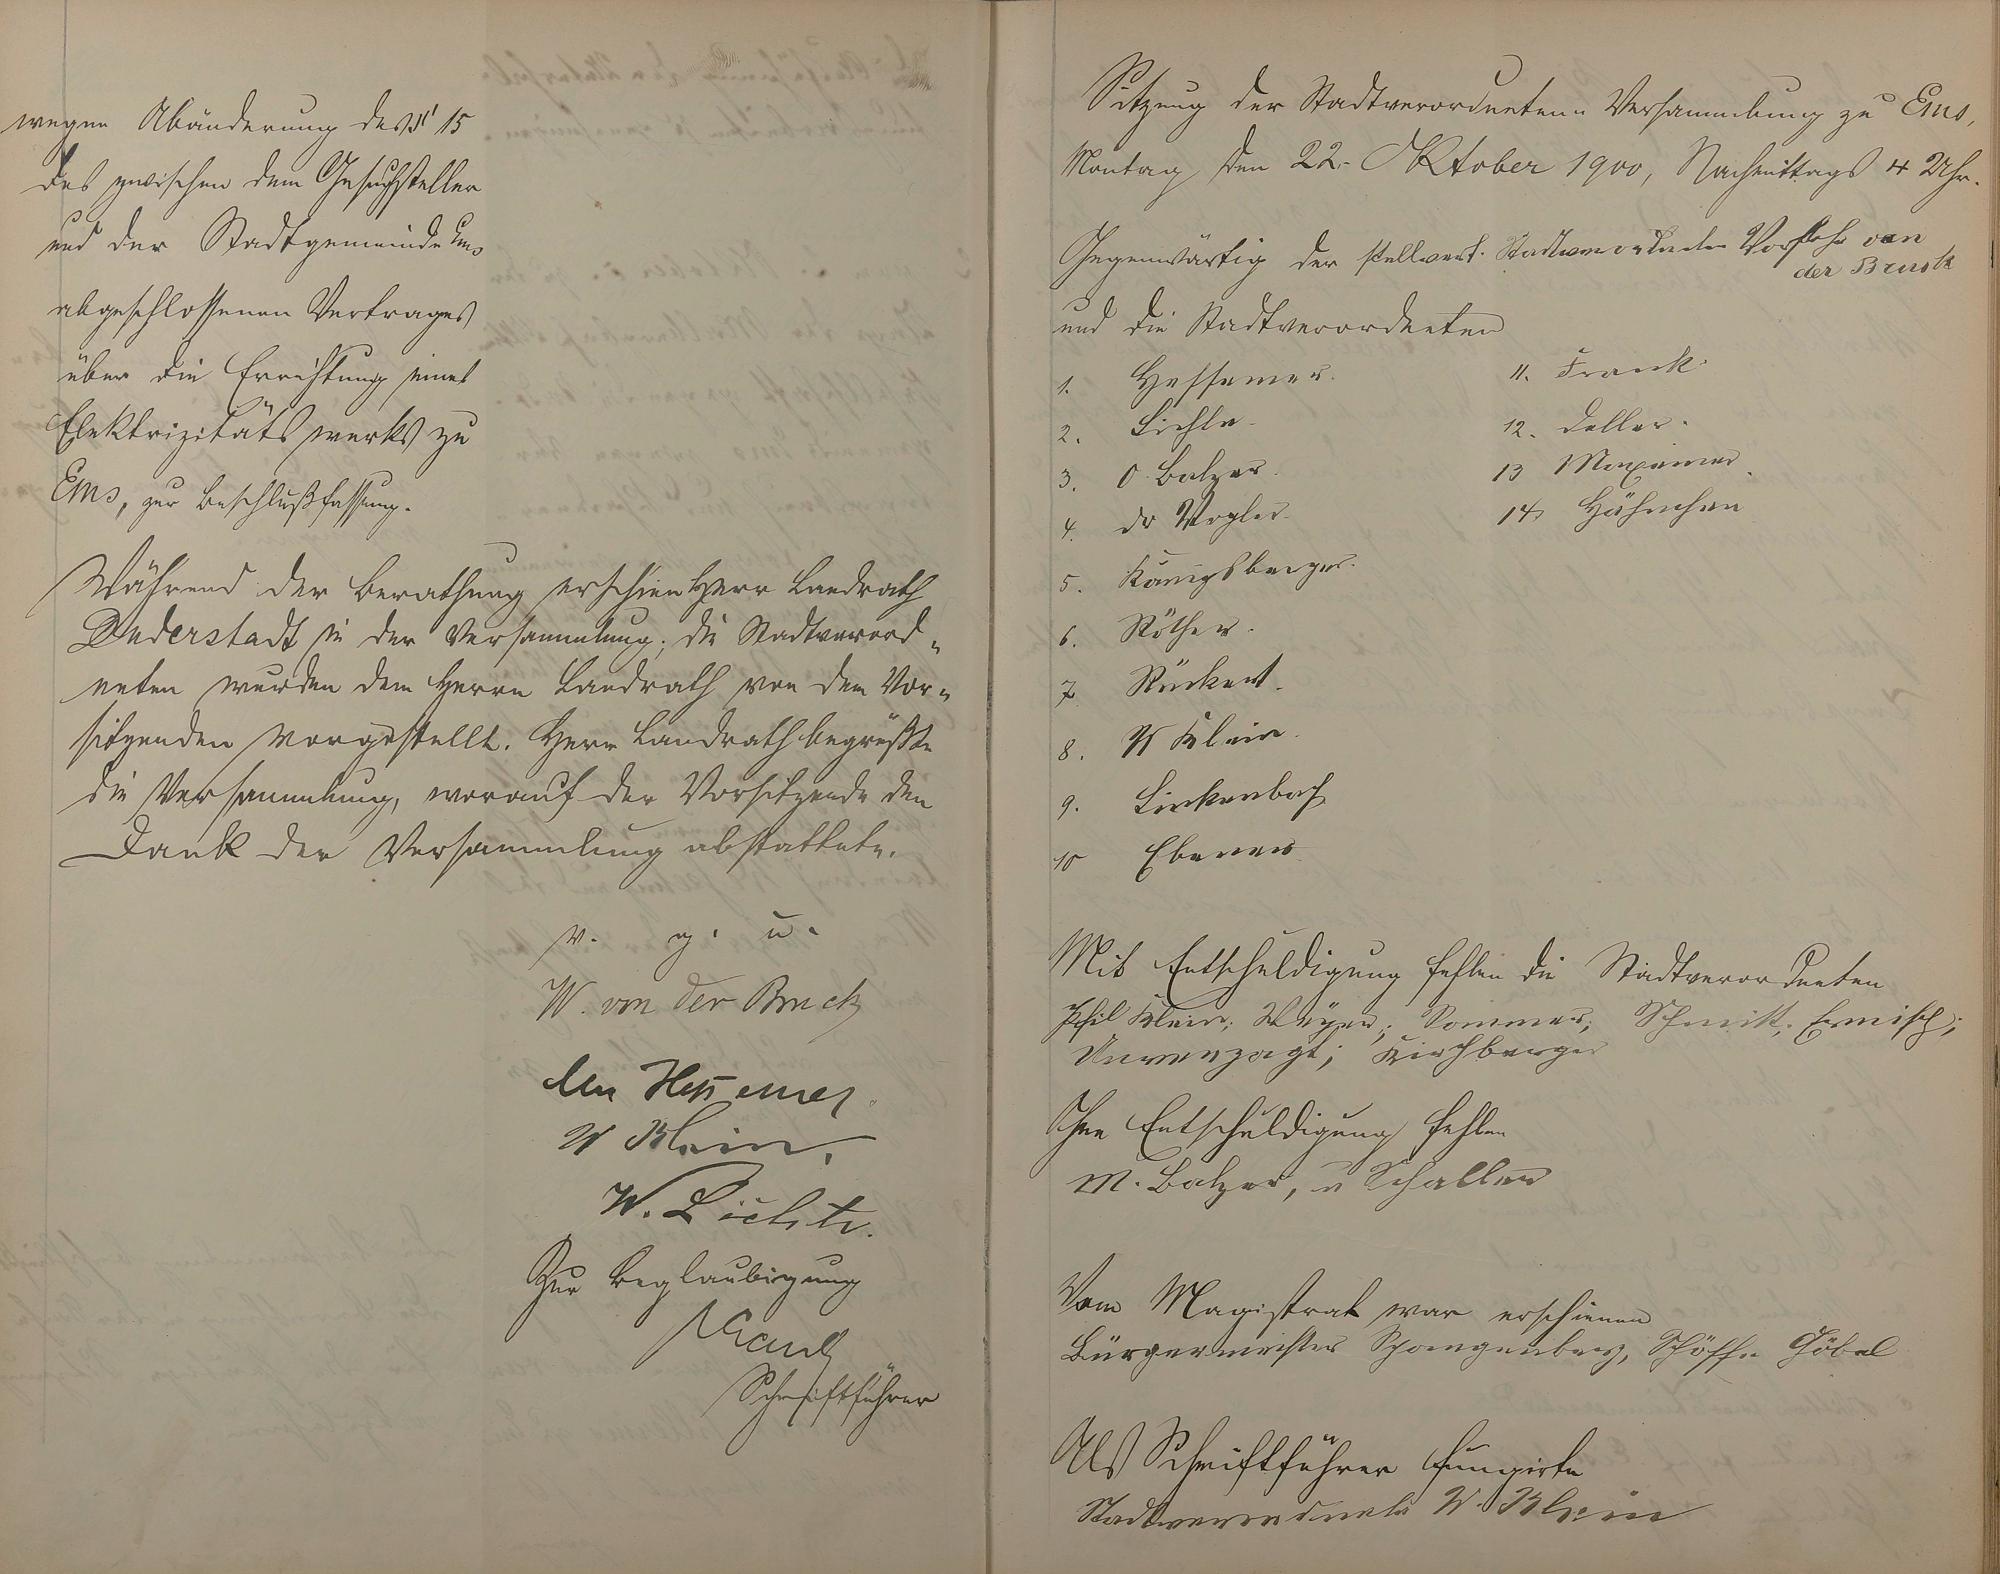 wegen Abänderung des § 15
des zwischen dem Gesuchsteller
und der Stadtgemeinde Ems
abgeschlossenen Vertrages
über die Errichtung eines
Elektrizitäts werks zu
Ems, zur Beschlußfassung.
Während der Berathung erschien Herr Landrath
Duderstadt in der Versammlung; die Stadtverord-
neten wurden dem Herrn Landrath von dem Vor-
sitzenden vorgestellt. Herr Landrath begrüßte
die Versammlung, worauf der Vorsitzende den
Dank der Versammlung abstattete.
v. g. u.
W. von der Bruck
Hessemer.
W Klein.
W.
Zur Beglaubigung
Schriftführer
Sitzung der Stadtverordneten-Versammlung zu Ems,
Montag, den 22. Oktober 1900, Nachmittags 4 Uhr.
Gegenwärtig der stellvert. Stadtverordneten Vorsteher von
der Bruck
und die Stadtverordneten
1. Hessemer.
2.
3. O. Balzer.
4. Dr Vogler.
5. Königsberger.
6. Röther.
7. Rückert.
8. W Klein.
9. Linkenbach
10
11. Frank.
12.
13
14. Hähnchen
Mit Entschuldigung fehlen die Stadtverordneten
Phil Klein; Sommer; Schmitt; Ermisch;
Unverzagt; Kirchberger
Ohne Entschuldigung fehlen
M. Balzer, u Schaller
Vom Magistrat war erschienen
Bürgermeister Spangenberg, Schöffe Göbel
Als Schriftführer fungirte
Stadtverordneter W. Klein